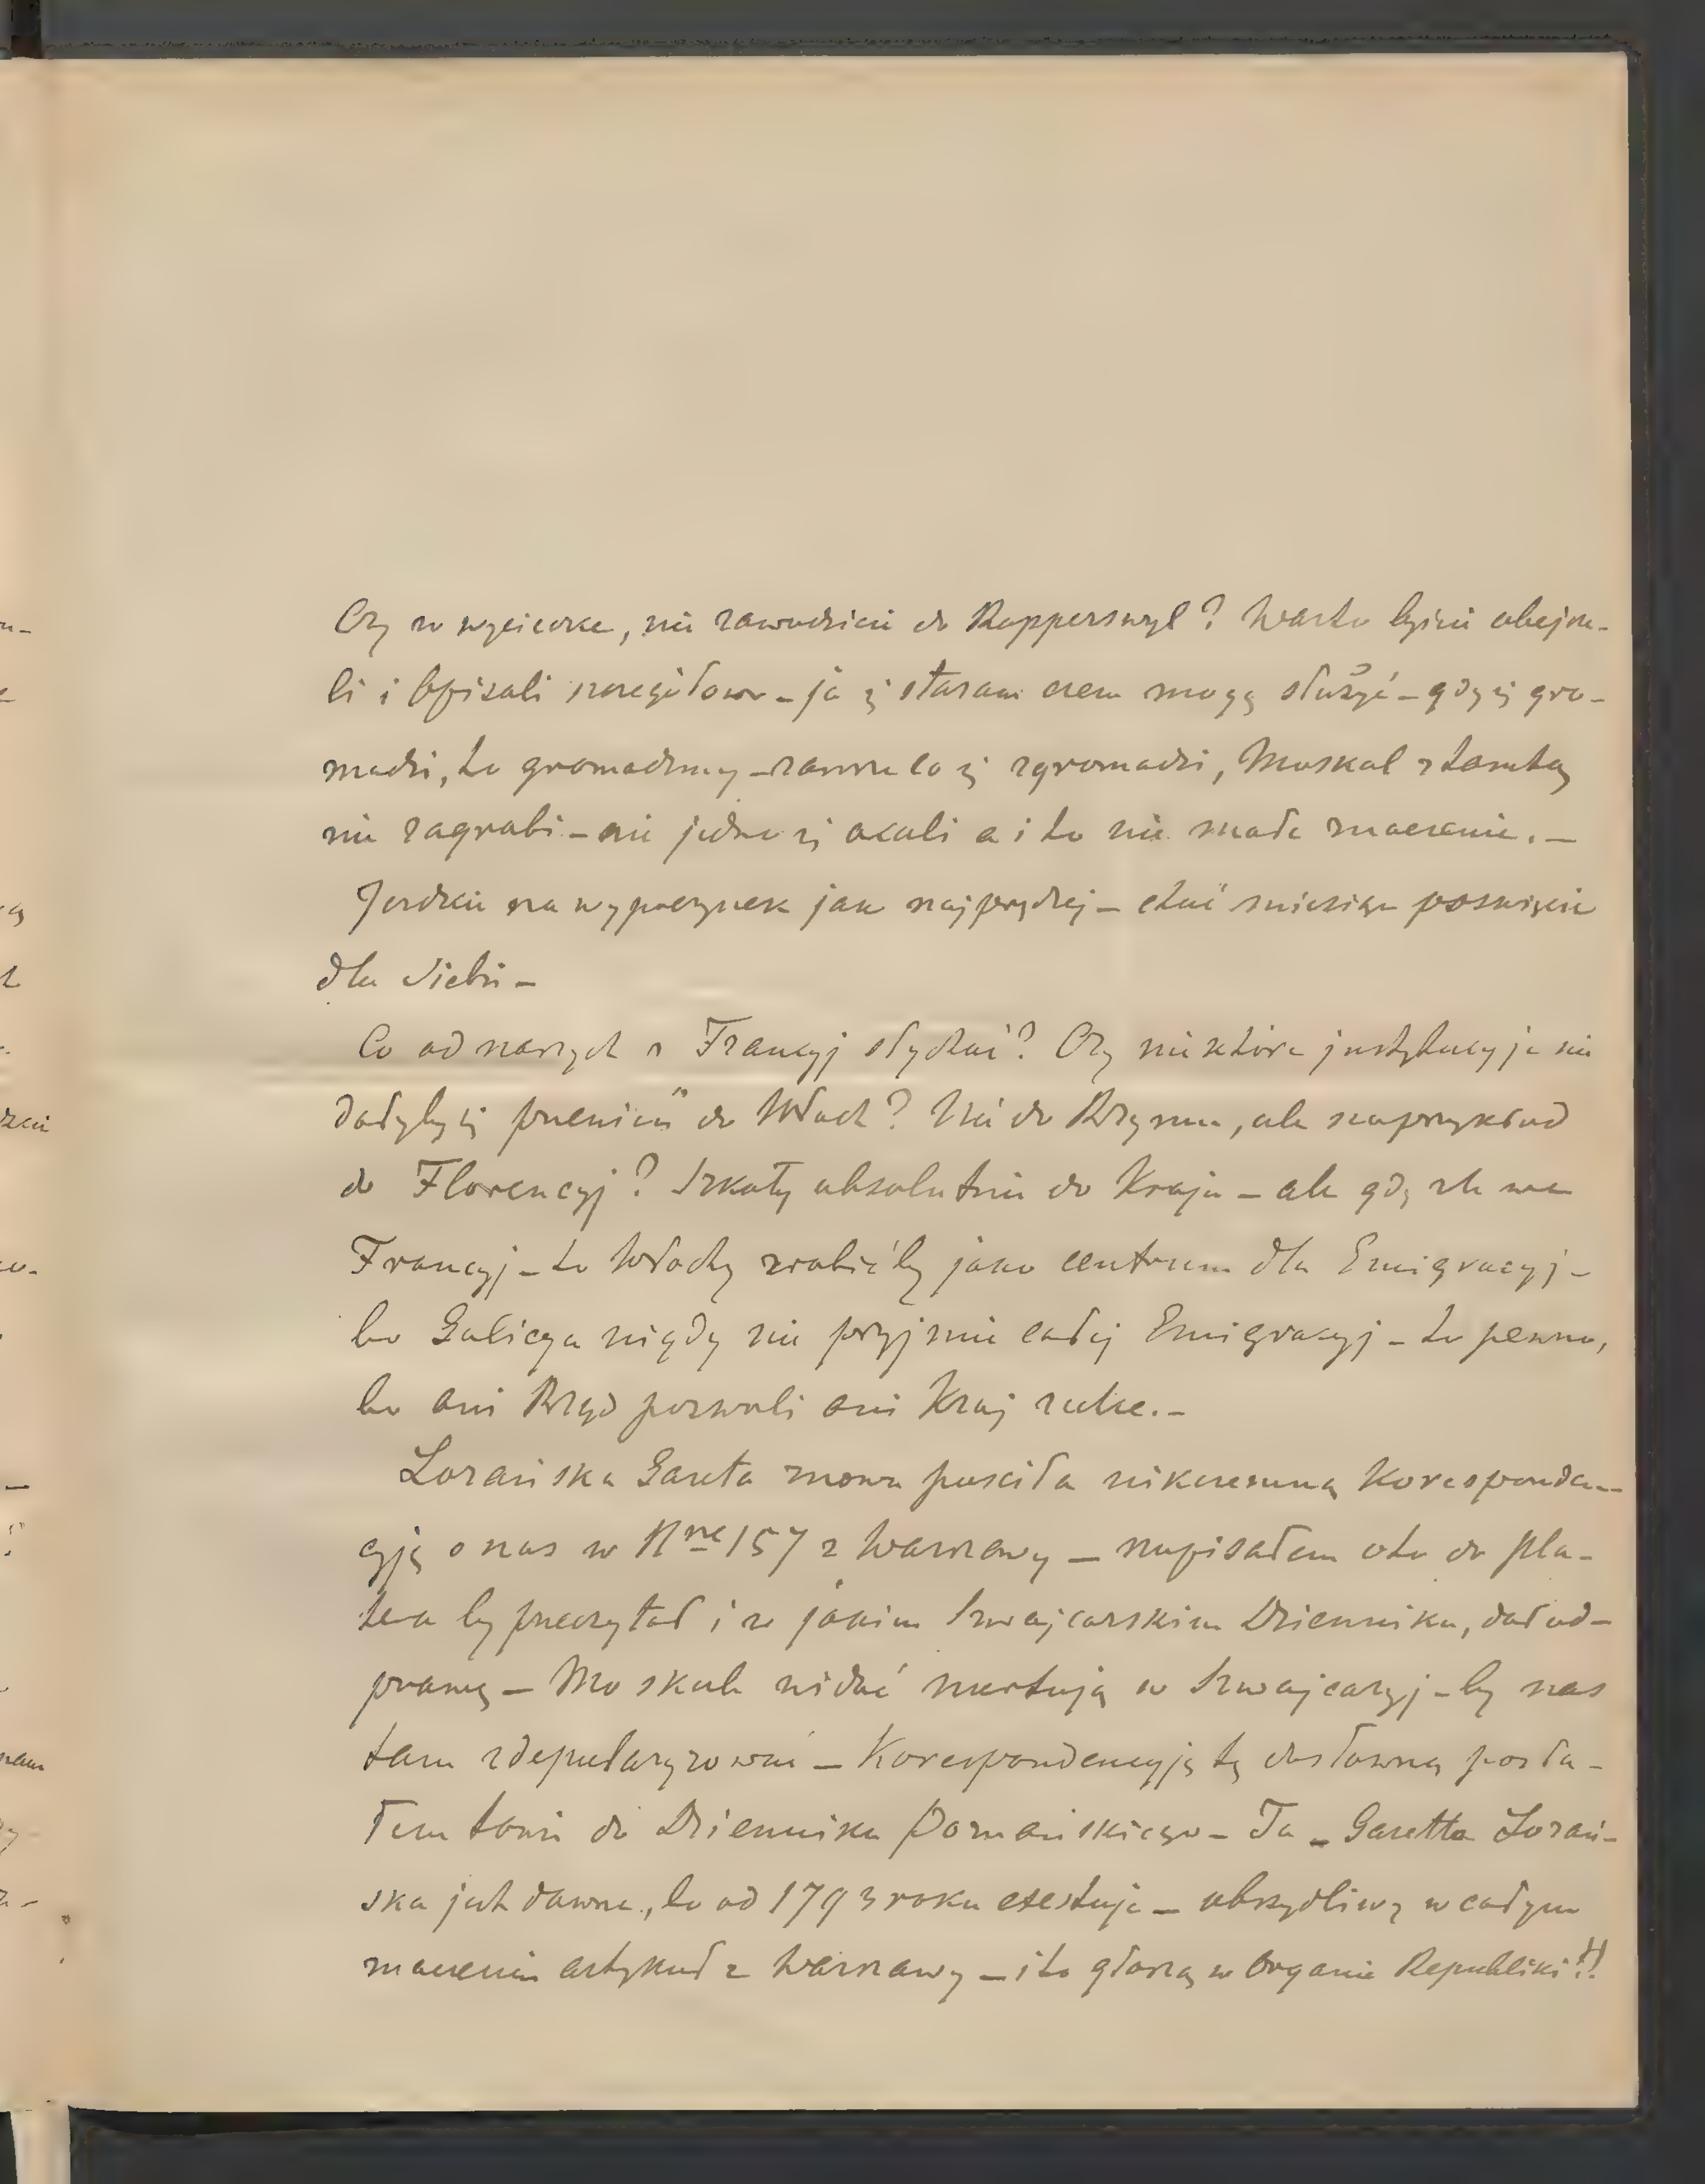 Czy w wycieczce, nie zawadzicie do Rapperswyl? Warto byście obejrze-
li i opisali szczegółowo – ja się staram czem mogę służyć – gdy się gro-
madzi, to gromadźmy – zawsze co się zgromadzi, Moskal z tamtąd
nie zagrabi – nie jedno się ocali a i to nie małe znaczenie. –
Jedźcie na wypoczynek jak najprędzej – choć miesiąc poświęćcie
dla siebie –
Co od naszych z Francyj słychać? Czy niektóre instytucyje nie
dałyby się przenieść do Włoch? Nie do Rzymu, ale naprzykład
do Florencyj? Szkoły absolutnie do Kraju – ale gdy źle we
Francyj – to Włochy zrobićby jako centrum dla Emigracyj –
bo Galicya nigdy nie przyjmie całej Emigracyj – to pewno,
bo ani Rząd pozwoli ani Kraj zechce. –
Lozańska Gazeta znowu puściła nikczemną Koresponden-
cyję o nas w Nrze 157 z Warszawy – napisałem oto do Pla-
tera by przeczytał i w jakim Szwajcarskim Dzienniku, dał od-
prawę – Moskale widać nurtują w Szwajcaryj – by nas
tam zdepopularyzować – Korespondencyję tę dosłowną posła-
łem także do Dziennika Poznańskiego – Ta – Gazetta Lozań-
ska jest dawna, bo od 1793 roku egzestuje – obrzydliwy w całym
znaczeniu artykuł z Warszawy – i to głoszą w Organie Republiki!!